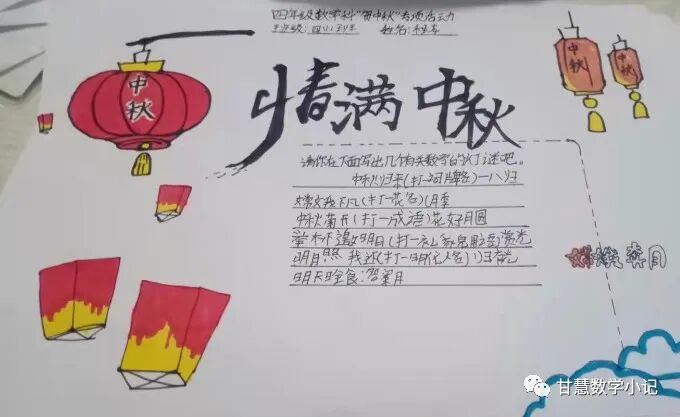 四年级数学科"贺中秋"专项活动
班级：四(1)班 姓名：
中秋
中秋
中秋
情满中秋
请你在下面写出几个有关数字的灯谜吧。
中秋归来(打一词牌名)一八归
嫦娥下凡(打一花名)月季
中秋菊开(打一成语)花好月圆
举杯邀明月(打一礼貌用语)赏光
明月照我还(打一明代人名)归有光
明天日全食：
嫦娥奔月
甘慧数学小记